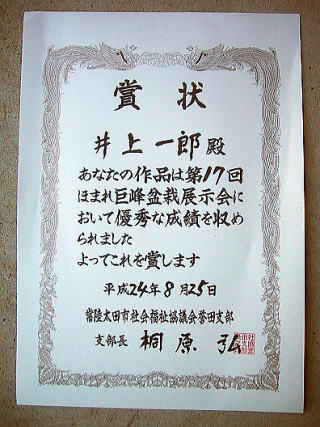 賞状
井上一郎殿
あなたの作品は第17回
ほまれ巨峰盆栽展示会に
おいて優秀な成績を収め
られました
よってこれを賞します
平成24年8月25日
常陸太田市社会福祉協議会誉田支部
支部長 桐原 弘